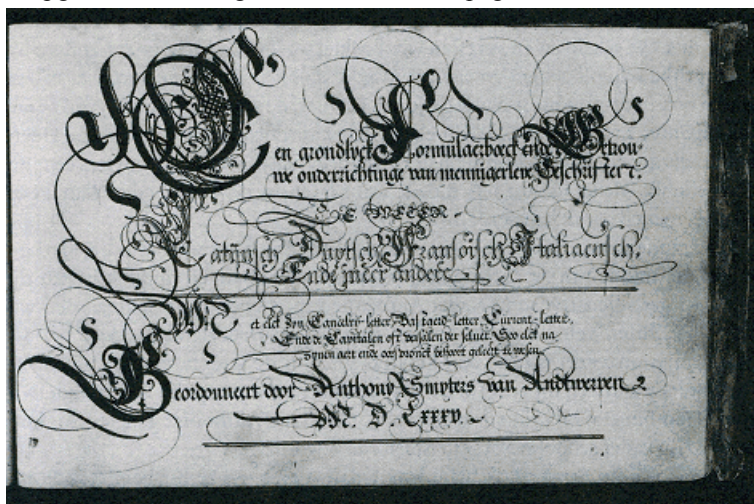 Een grondlyck Formulaerboeck ende Getrou-
we onderrichtinge van mennigerleye Geschriften.
TE WETEN.
Latÿnsch, Duytsch, Fransoisch, Italiaensch,
Ende meer andere
Met elck zyn Cancelrÿ-letter, Bastaerd-letter, Current-letter,
Ende de Capitalen oft versalen der selver, Soo elck na
zynen aert ende oorspronck behoort geleert te wesen
Geordonneert door Anthony Smyters van Andtwerpen
M. D. LXXXV.